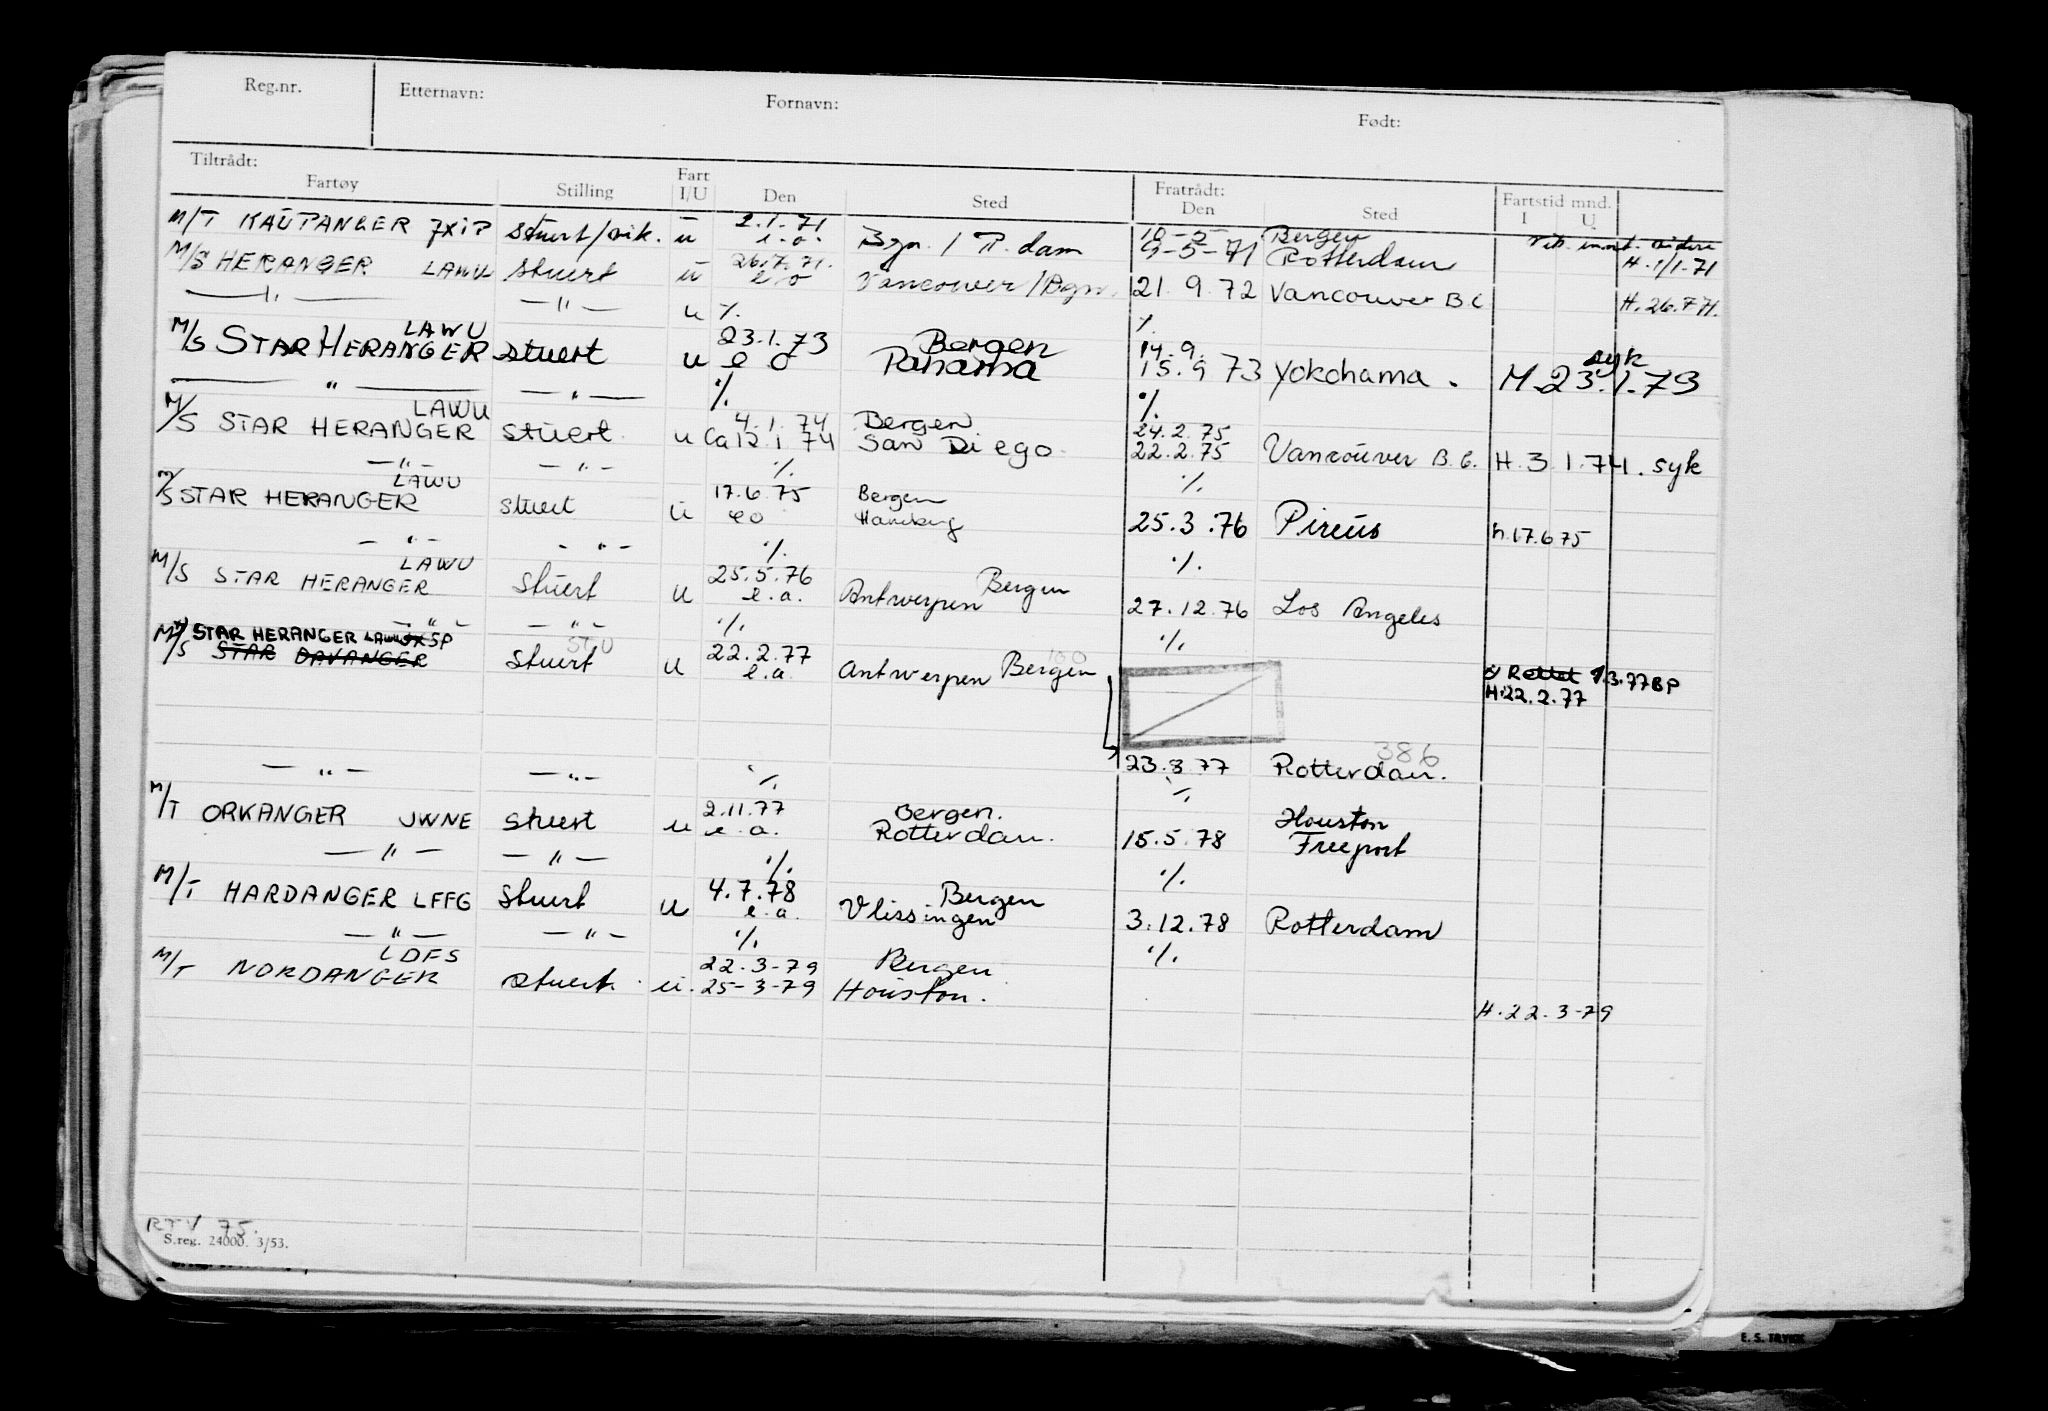 Reg.nr. Etternavn: Fornavn: Født:
Tiltrådt: Fratrådt:
Fartøy Stilling Fart I/U Den Sted Den Sted Fartstid mnd. I U
M/T KAUPANGER JXIP Stuert/vik. u 2.1.71 e.o. Bgn. / R.dam 10-5- 9-5-71 Bergen Rotterdam H. 1/1-71
M/S HERANGER LAWU Stuert u 26.7.71. e.o Vancouver/Bgn. 21.9.72 Vancouver B.C H. 26.7.71.
—"— —"— u %. %.
M/S STAR HERANGER LAWU Stuert u 23.1.73 e o Bergen Panama 14.9. 15.9 73 Yokohama. syk M 23.1.73
—"— —"— %. %.
M/S STAR HERANGER LAWU Stuert u 4.1.74 Ca 12.1.74 Bergen San Diego. 24.2.75 22.2.75 Vancouver B.C. H.3.1.74. syk
—"— —"— %. %.
M/S STAR HERANGER LAWU Stuert u 17.6.75 eo Bergen Hamburg 25.3.76 Pireus h.17.6.75
—"— —"— %. %.
M/S STAR HERANGER LAWU Stuert u 25.5.76 e.a. Antwerpen Bergen 27.12.76 Los Angeles
—"— —"— %. %.
x) STAR HERANGER LAWU JXSP
M/S STAR DAVANGER Stuert u 22.2.77 e.a. Antwerpen Bergen x) Rettet 1.3.77 BP
H.22.2.77
386
—"— —"— %. 23.8.77 Rotterdam.
%.
M/T ORKANGER JWNE Stuert u 2.11.77 e.a. Bergen. Rotterdam. 15.5.78 Houston Freeport
—"— —"— %. %.
M/T HARDANGER LFFG Stuert u 4.7.78 e.a. Bergen Vlissingen 3.12.78 Rotterdam
—"— —"— %. %.
M/T NORDANGER LDFS Stuert. u. 22.3-79 25-3-79 Bergen Houston. H.22.3-79
RTV 75.
S.reg. 24000. 3/53.
E. S. TRYKK